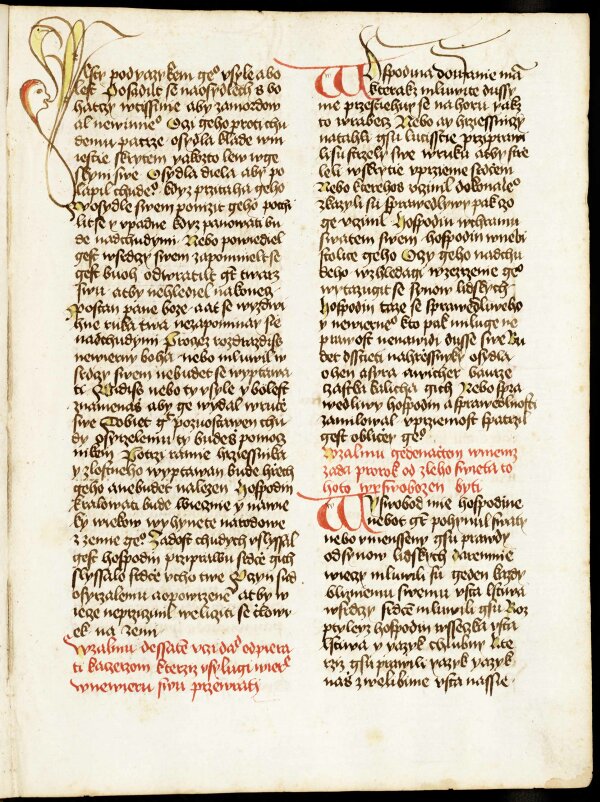 Vsty podyazykem geͦ vsyle abo
lest Posadil se naosydlech s bo
hatzy wtissinie aby zamozdow
al newinneͦ Ozi geho proti chu
demu patrze osydla klade wm
iestie skrytem yakozto lew wge
skyni swe Osydla diela aby po
lapil chudeͦ kdyz przitaha geho
W osydle swem ponizil geho pochi
lil se y vpadne kdyz panowati bu
de nadchudymi Nebo powiediel
gest wsrdczy swem zapomnielt se
gest buoh odwratilt gt twarz
swu athy nehlediel nakonecz
Powstan pane boze aat se wyzdwi
hne ruka twa nezapominay sie
nadchudymi Procz rozdrazdil
newierny boha nebo mluwil w
srdczy swem nebudet se wyptawa
ti Widiss nebo ty vsyle y bolest
znamenass aby ge wydal wruce
swe Tobiet gt pozuostawen chu
dy osyrzelemu ty budess pomocz
nikem Potrzi ramie hrziessnika
y zlostneho wyptawan bude hrziech
geho anebudet nalezen Hospodin
kralowati bude wiecznie y nawie
ky wiekow wyhynete narodowe
z zemie geͦ Zadost chudych vslyssal
gest hospodin przyprawu srdce gich
slyssalo srdce vcho twe Czyn sud
osyrzalemu aponizene aby w
iecze neprziczinil welicziti se czlowi
ek na zemi
W zalmu dessate vczi das odpiera
ti kacierzom kterziz vsylugi wieru
wnewieru swu przewrati
W Hospodina dowranie ma
kterak mluwite dussy
me przestiehuy se nahoru yakz
to wrabecz Nebo ay hrziessniczy
natahli gsu luczisstie przyprawi
li su strzely swe wtuku atby strze
leli wskrytie vprzieme srdcem
Nebo kterehos vczinil dokonaleͦ
zkazyli su sprawedlywy pak czo
ge vczinil Hospodin wchramu
swatem swem hospodin wnebi
stolice geho Oczy geho nadchu
deho wzhledagi wzezrzenie geͦ
wytazugit se synow lidskych
Hospodin taze se sprawedliweho
y newierneͦ kto pak miluge ne
prawost nenawidi dusse swe Bu
det dsstieti nahrziessniky osydla
ohen asyra awicher burze
czastka kalicha gich Nebo spra
wedliwy hospodin asprawedlnosti
zamilowal vprziemost spatrzil
gest obliczey geͦ
W zalmu gedenacztem wnemz
zada prorok od zleho swieta to
hoto wyswobozen byti
W Yswobod mie hospodine
nebot gt pohynul swaty
nebo vmensseny gsu prawdy
odsynow lidskych Daremnie
wieczy mluwili su geden kazdy
bliznieniu swemu vsta lstiwa
wsrdczy srdce mluwili gsu Roz
ptylez hospodin wsseczka vsta
lstiwa y yazyk chlubny Kte
rziz gsu prawili yazyk yazyk
nas zwelibime vsta nassie